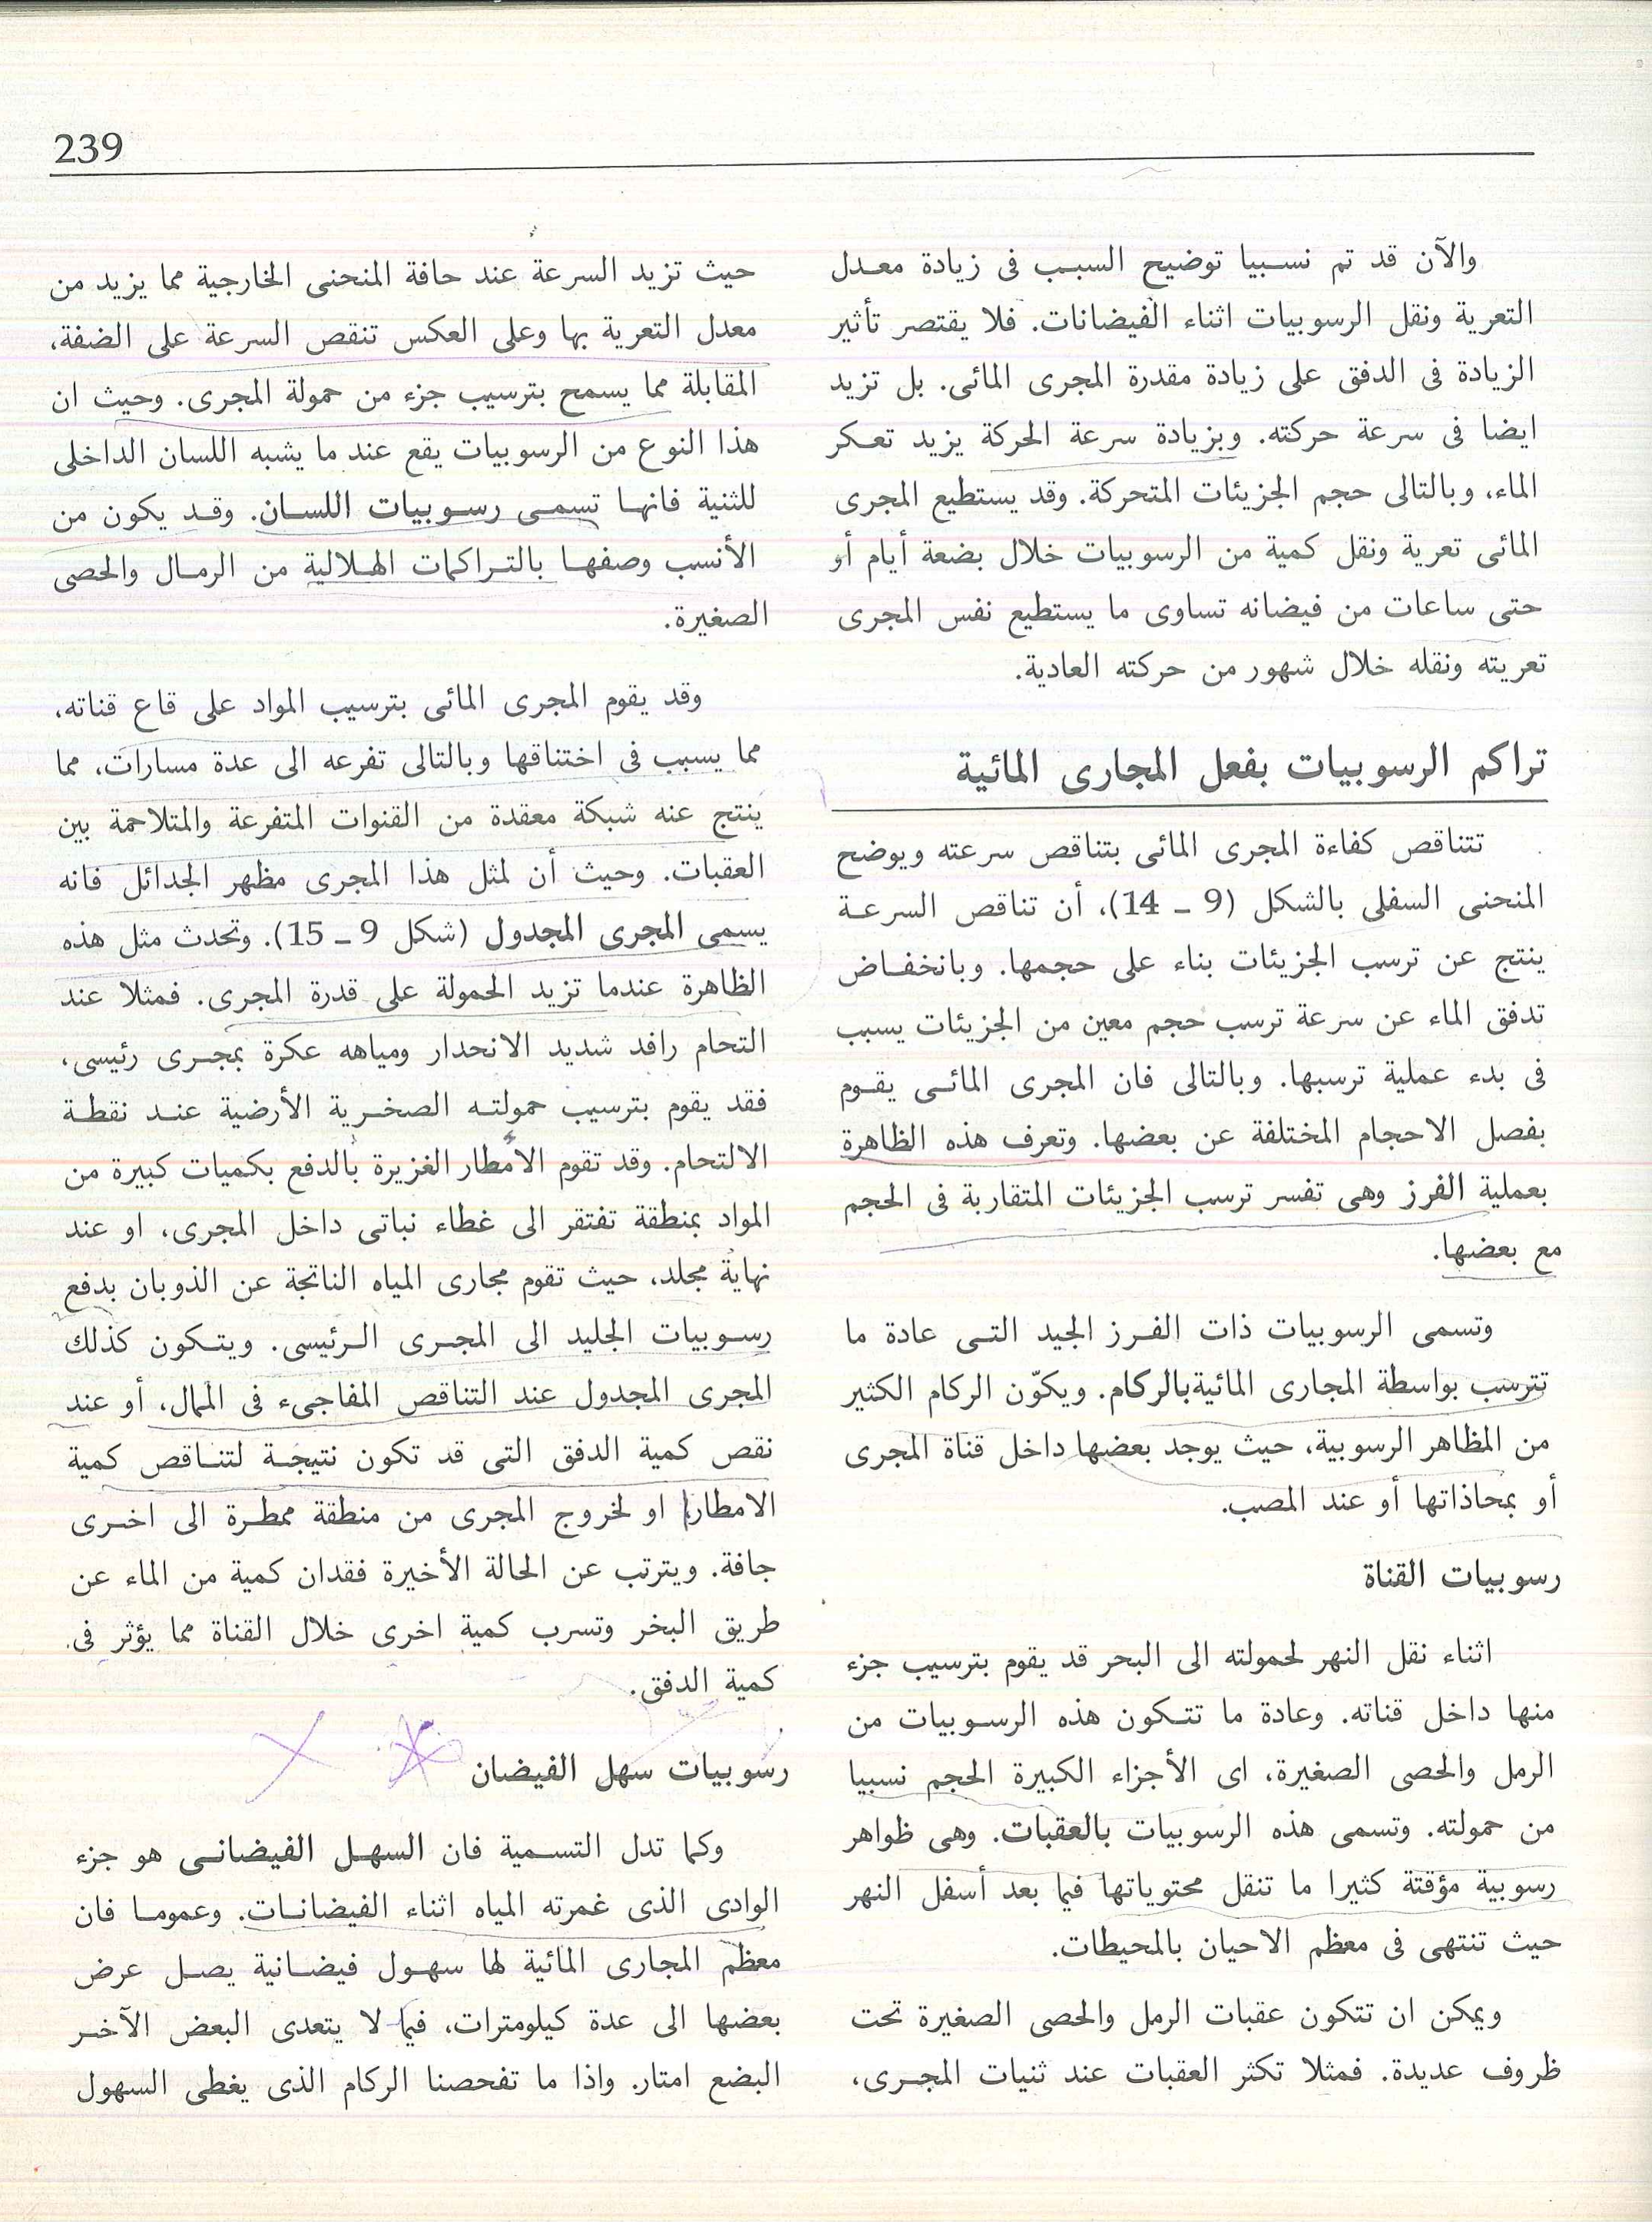 239
والآن قد تم نسبيا توضيح السبب فى زيادة معدل
التعرية ونقل الرسوبيات اثناء الفيضانات. فلا يقتصر تأثير
الزيادة فى الدفق على زيادة مقدرة المجرى المائى. بل تزيد
ايضا فى سرعة حركته. وبزيادة سرعة الحركة يزيد تعكر
الماء، وبالتالى حجم الجزيئات المتحركة. وقد يستطيع المجرى
المائى تعرية ونقل كمية من الرسوبيات خلال بضعة أيام أو
حتى ساعات من فيضانه تساوى ما يستطيع نفس المجرى
تعريته ونقله خلال شهور من حركته العادية.
تراكم الرسوبيات بفعل المجارى المائية
تتناقص كفاءة المجرى المائى بتناقص سرعته ويوضح
المنحنى السفلى بالشكل (9 - 14)، أن تناقص السرعة
ينتج عن ترسب الجزيئات بناء على حجمها. وبانخفاض
تدفق الماء عن سرعة ترسب حجم معين من الجزيئات يسبب
فى بدء عملية ترسبها. وبالتالى فان المجرى المائى يقوم
بفصل الاحجام المختلفة عن بعضها. وتعرف هذه الظاهرة
بعملية الفرز وهى تفسر ترسب الجزيئات المتقاربة فى الحجم
مع بعضها.
وتسمى الرسوبيات ذات الفرز الجيد التى عادة ما
تترسب بواسطة المجارى المائية بالركام. ويكوّن الركام الكثير
من المظاهر الرسوبية، حيث يوجد بعضها داخل قناة المجرى
أو بمحاذاتها أو عند المصب.
رسوبيات القناة
اثناء نقل النهر لحمولته الى البحر قد يقوم بترسيب جزء
منها داخل قناته. وعادة ما تتكون هذه الرسوبيات من
الرمل والحصى الصغيرة، اى الأجزاء الكبيرة الحجم نسبيا
من حمولته. وتسمى هذه الرسوبيات بالعقبات. وهى ظواهر
رسوبية مؤقتة كثيرا ما تنقل محتوياتها فيما بعد أسفل النهر
حيث تنتهى فى معظم الاحيان بالمحيطات.
ويمكن ان تتكون عقبات الرمل والحصى الصغيرة تحت
ظروف عديدة. فمثلا تكثر العقبات عند ثنيات المجرى،
حيث تزيد السرعة عند حافة المنحنى الخارجية مما يزيد من
معدل التعرية بها وعلى العكس تنقص السرعة على الضفة،
المقابلة مما يسمح بترسيب جزء من حمولة المجرى. وحيث ان
هذا النوع من الرسوبيات يقع عند ما يشبه اللسان الداخلى
للثنية فانها تسمى رسوبيات اللسان. وقد يكون من
الأنسب وصفها بالتراكمات الهلالية من الرمال والحصى
الصغيرة.
وقد يقوم المجرى المائى بترسيب المواد على قاع قناته،
مما يسبب فى اختناقها وبالتالى تفرعه الى عدة مسارات، مما
ينتج عنه شبكة معقدة من القنوات المتفرعة والمتلاحمة بين
العقبات. وحيث أن لمثل هذا المجرى مظهر الجدائل فانه
يسمى المجرى المجدول (شكل 9 - 15). وتحدث مثل هذه
الظاهرة عندما تزيد الحمولة على قدرة المجرى. فمثلا عند
التحام رافد شديد الانحدار ومياهه عكرة بمجرى رئيسى،
فقد يقوم بترسيب حمولته الصخرية الأرضية عند نقطة
الالتحام. وقد تقوم الأمطار الغزيرة بالدفع بكميات كبيرة من
المواد بمنطقة تفتقر الى غطاء نباتى داخل المجرى، او عند
نهاية مجلد، حيث تقوم مجارى المياه الناتجة عن الذوبان بدفع
رسوبيات الجليد الى المجرى الرئيسى. ويتكون كذلك
المجرى المجدول عند التناقص المفاجىء فى الممال، أو عند
نقص كمية الدفق التى قد تكون نتيجة لتناقص كمية
الامطار او لخروج المجرى من منطقة ممطرة الى اخرى
جافة. ويترتب عن الحالة الأخيرة فقدان كمية من الماء عن
طريق البخر وتسرب كمية اخرى خلال القناة مما يؤثر فى
كمية الدفق.
رسوبيات سهل الفيضان
وكما تدل التسمية فان السهل الفيضانى هو جزء
الوادى الذى غمرته المياه اثناء الفيضانات. وعموما فان
معظم المجارى المائية لها سهول فيضانية يصل عرض
بعضها الى عدة كيلومترات، فيما لا يتعدى البعض الآخر
البضع امتار. واذا ما تفحصنا الركام الذى يغطى السهول